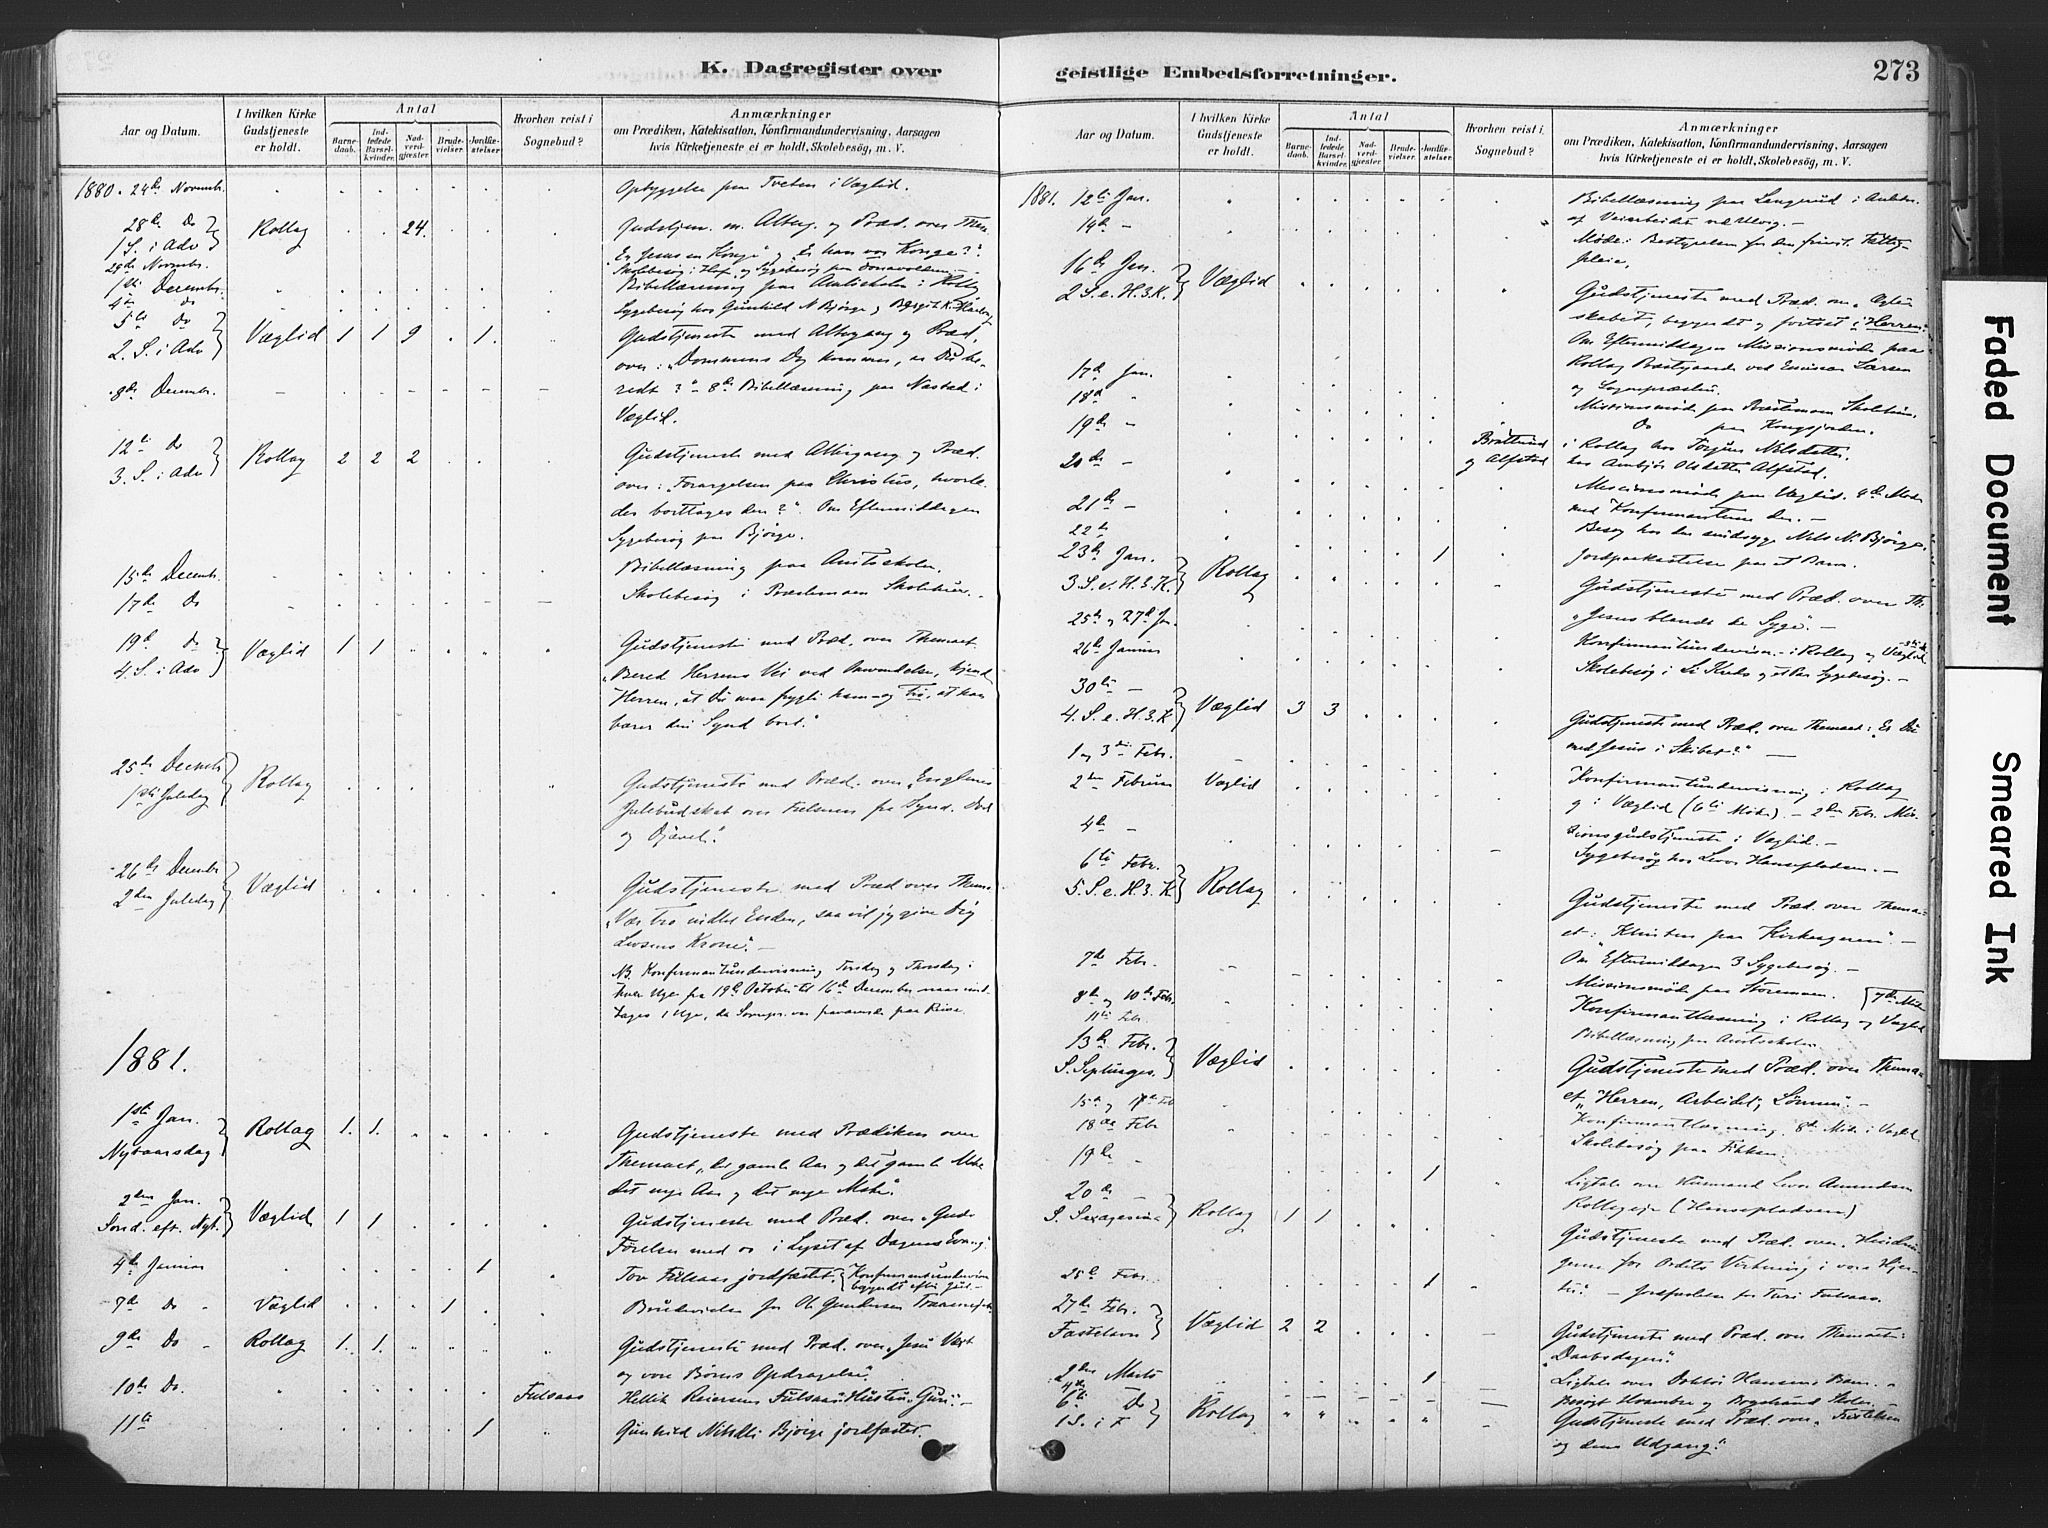 K. Dagregister over
Aar og Datum.
I hvilken Kirke Gudstjeneste er holdt.
Antal
Barnedaab.
Indledede Barselkvinder.
Nadverdgjæster.
Brudevielser.
Jordfæstelser.
Hvorhen reist i Sognebud?
Anmærkninger
om Prædiken, Katekisation, Konfirmandundervisning, Aarsagen
hvis Kirketjeneste ei er holdt, Skolebesøg, m. V.
1880. 24de Novembr. Opbyggelse paa Tveten i Væglid.
28de Do 1 S. i Adv Rollag 24. Gudstjen. m. Alterg. og Præd. over Them
"Er Jesus en Konge" og "Er han vor Konge?".
29de Novembr. Skolebesøg i
1ste Decembr. Bibellæsning paa Amtsskolen i Rollag
4de do Sygebesøg hos Gunhild N Bjørge og
5te do 2. S. i Adv Væglid 1 1 9 . 1. Gudstjeneste med Altergang og Præd.
over: "Dommens Dag kommer, er Du be-
8de Decembr. redt?" 8de Bibellæsning paa Nastad i
Væglid.
12te Do 3. S. i Adv Rollag 2 2 2 Gudstjeneste med Altergang og Præd.
over: "Forargelsen paa Christus, hvorle-
des borttages den?". Om Eftermiddagen
Sygebesøg paa Bjørge.
15de Decembr. Bibellæsning paa Amtsskolen.
17de Do Skolebesøg i Præstemoen Skolekreds.
19de do 4. S. i Adv Væglid 1 1 Gudstjeneste med Præd. over Themaet
"Bered Herrens Vei ved Omvendelse, kjend
Herren, at Du maa frygte ham og tro, at han
bærer din Synd bort."
25de Decembr 1ste Juledag Rollag Gudstjeneste med Præd. over "Englenes
Julebudskab om Frelseren fra Synd, Død
og Djævel".
26de Decembr 2den Juledag Væglid Gudstjeneste med Præd over Thema
"Vær tro indtil Enden, saa vil jeg give Dig
Livsens Krone". —
NB. Konfirmantundervisning Tirsdag og Thorsdag i
hver Uge fra 19de October til 16de December naar und-
tages 1 Uge, da Sognepr. var fraværende paa Reise.
1881.
1ste Jan. Nytaarsdag Rollag 1. 1. Gudstjeneste med Prædiken over
Themaet "det gamle Aar og det gamle Møde
det nye Aar og det nye Møde".
2den Jan. Sønd. eft. Nyt. Væglid 1 1 Gudstjeneste med Præd. over "Guds
Førelser med os i Lyset af Dagens Evang."
4de Januar 1 Tov Fulsaas jordfæstet. Konfirmantundervisn begyndt efter Jul
7de Do Væglid 1 Brudevielse for Ole Gundersen
9de Do Rollag 1. 1. Gudstjeneste med Præd. over "Jesu Vext
og vore Børns Opdragelse".
10de Do. Fulsaas Hellik Reiersens Fulsaas Hustru Guri. —
11te 1 Gunhild Nilsdtr Bjørge jordfæstet.
geistlige Embedsforretninger.
273
Aar og Datum.
I hvilken Kirke Gudstjeneste er holdt.
Antal
Barnedaab.
Indledede Barselkvinder.
Nadverdgjæster.
Brudevielser.
Jordfæstelser.
Hvorhen reist i Sognebud?
Anmærkninger
om Prædiken, Katekisation, Konfirmandundervisning, Aarsagen
hvis Kirketjeneste ei er holdt, Skolebesøg, m. V.
1881. 12te Jan. Bibellæsning paa Lengerud i
af Veiarbeidet
14de — Møde i Bestyrelsen for den frivil. Fattig-
pleie.
16de Jan. 2 S. e. H. 3. K. Væglid Gudstjeneste med Præd. om "Ægte-
skabet, begyndt og fortsat i Herren".
Om Eftermiddagen Missionsmøde paa
17de Jan. Rollag Præstegaard ved Emissær Larsen
og Sognepræsten.
18de " Missionsmøde paa Præstemoen Skolehus.
19de — Do paa Kongsjorden.
20de — og Alfstad i Rollag hos Torgun Nilsdatter.
hos Olsdatter Alfstad.
21de — Missionsmøde paa Væglid. 4de Møde
med Konfirmanterne der. —
22de Besøg hos den sindssyge Nils N. Bjørge.
23de Jan. 3 S. e. H. 3. K. Rollag 1 Jordpaakastelse paa et Barn.
Gudstjeneste med Præd. over Th.
25de og 27de Jan. "Jesus blandt de Syge". —
26de Januar Konfirmantundervisn. i Rollag og Væglid
Skolebesøg i Li Kreds og et Par Sygebesøg. —
30te — 4. S. e. H. 3. K Væglid 3 3 Gudstjeneste med Præd. over Themaet: "Er Du
med Jesus i Skibet?" —
1 og 3die Febr. Konfirmantundervisning i Rollag
2den Februar Væglid og i Væglid (6te Møde). — 2den Febr. Mis-
sionsgudstjeneste i Væglid. —
4de — Sygebesøg hos Levor Hansepladsen. —
6te Febr. 5. S. e. H. 3. K Rollag Gudstjeneste med Præd. over Thema-
et: "Klinten paa Kirkeageren". —
7de Febr. Om Eftermiddagen 3 Sygebesøg. —
Missionsmøde paa Storemoen. 7de Møde
8de og 10de Febr. Konfirmantlæsning i Rollag og Væglid
11te Febr. Bibellæsning paa Amtsskolen.
13de Febr. S. Septuages. Væglid Gudstjeneste med Præd. over Thema-
et "Herren, Arbeidet, Lønnen". —
15de og 17de Feb Konfirmantlæsning. 8de Møde i Væglid.
18de Febr Skolebesøg paa
19de — 1 Ligtale over Husmand Levor Amundsen
Rollageie (Hansepladsen)
20de — S. Sexagesima Rollag 1 1 Gudstjeneste med Præd. over Hindrin-
gerne for Ordets Virkning i vore Hjer-
25de Febr. 1 ter. — Jordfæstelse for Turi Fulsaas.
27de Febr. Fastelavn Væglid 2 2 Gudstjeneste med Præd. over Themaet:
"Daabsdagen".
2den Marts 1 Ligtale over Hansens Barn.
4de Besøgt
6te Do 1 S. i F Rollag Gudstjeneste med Præd. over "Fristelsen
og dens Udgang."
Faded Document
Smeared Ink